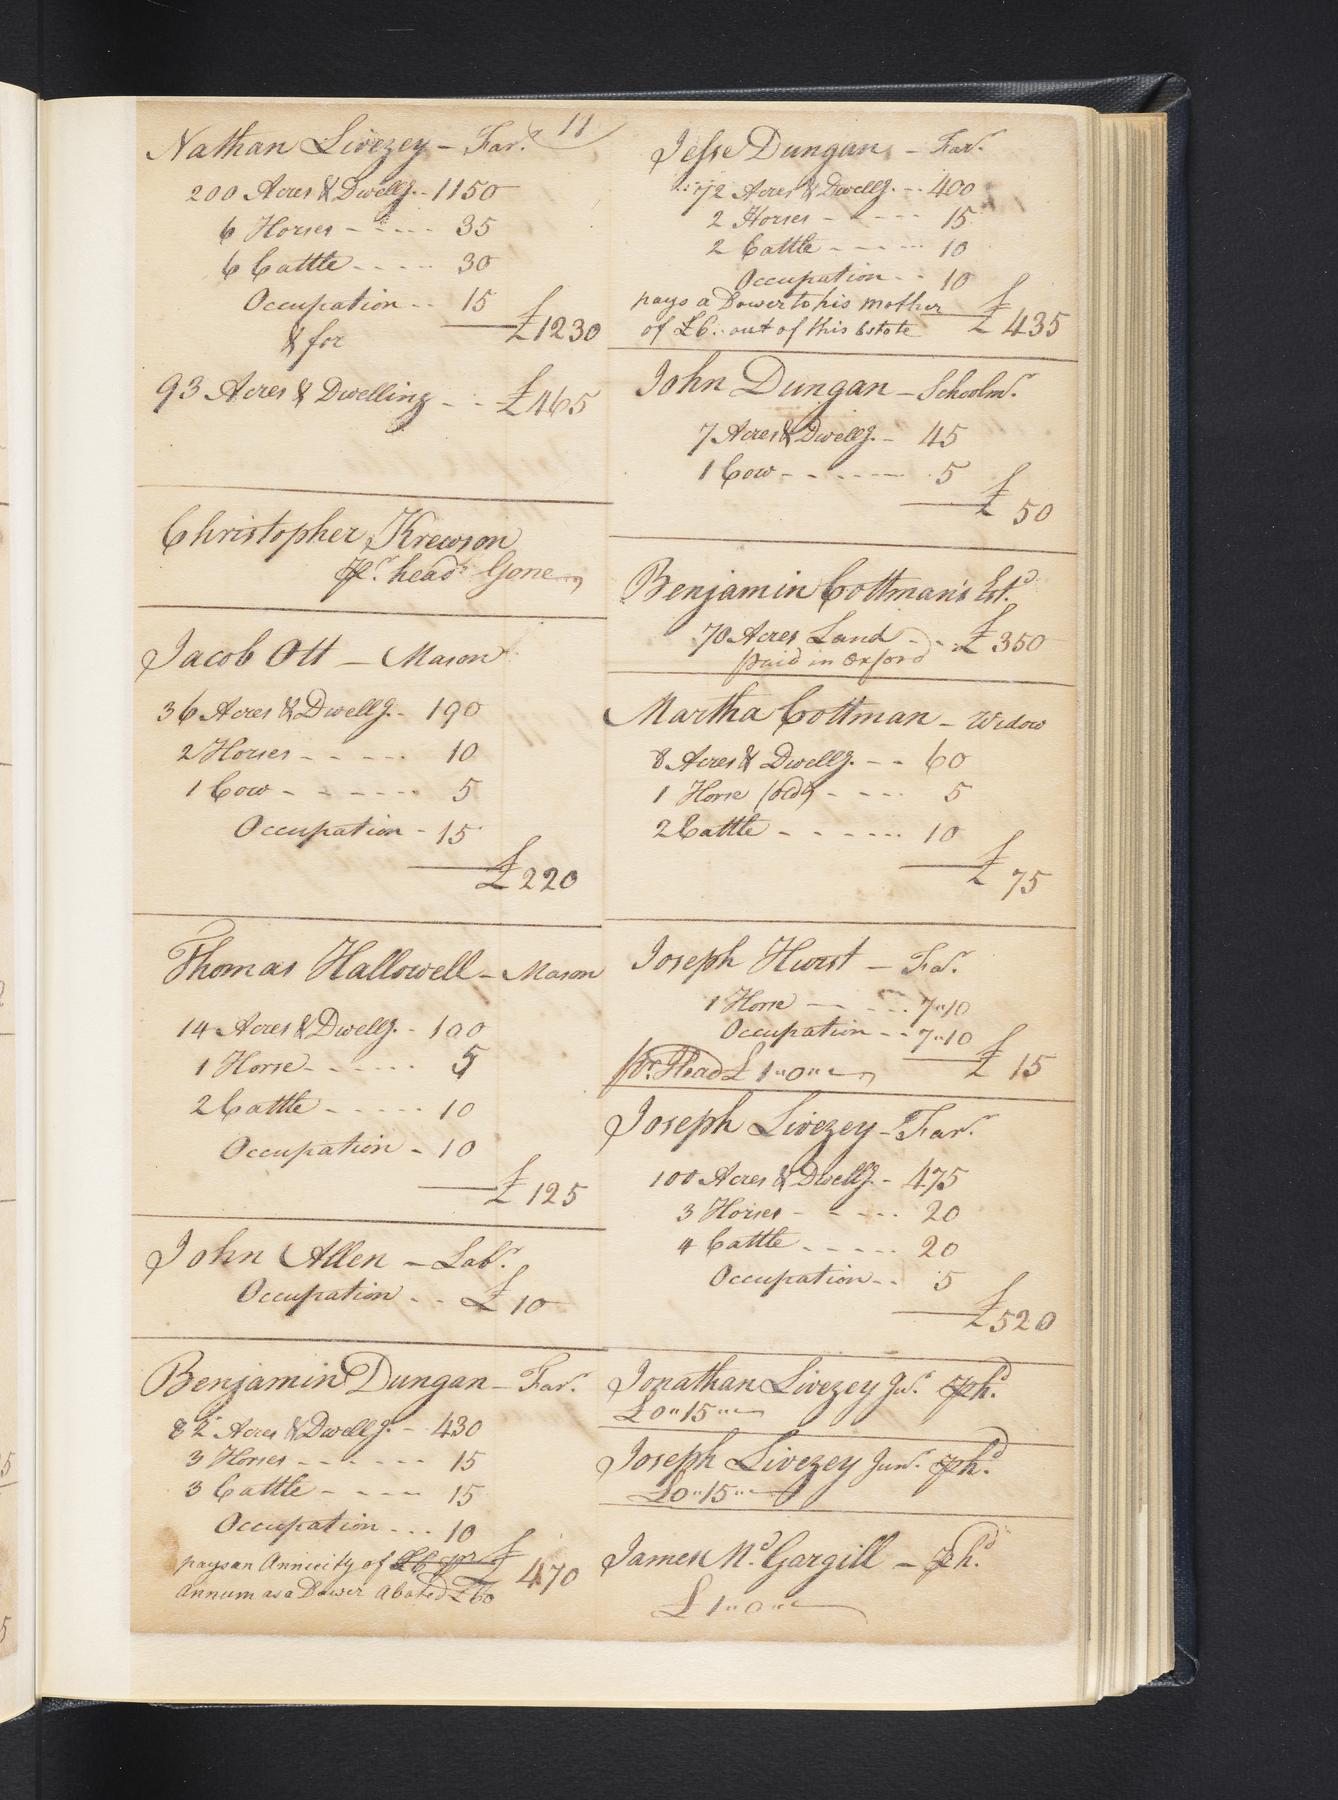 11
Nathan Livezey - Far.r
200 Acres & Dwellg. - 1150
6 Horses - - - - 35
6 Cattle - - - - 30
Occupation - - 15
£1230
& for
93 Acres & Dwelling - - £465
Christopher Krewson
Pr. head Gone
Jacob Ott - Mason
36 Acres & Dwellg. - 190
2 Horses - - - - - 10
1 Cow - - - - - - 5
Occupation - 15
£220
Thomas Hallowell - Mason
14 Acres & Dwellg. - 100
1 Horse - - - - - 5
2 Cattle - - - - - 10
Occupation - 10
£125
John Allen - Lab.r
Occupation - - £10
Benjamin Dungan - Far.r
82 Acres & Dwellg. - 430
3 Horses - - - - - - 15
3 Cattle - - - - 15
Occupation - - - 10
pays an Annuity of £6 pr £470
Annum as a Dower Abated £60
Jesse Dungan - Far.r
72 Acres & Dwellg. - - 400
2 Horses - - - - - 15
2 Cattle - - - - - 10
Occupation - - 10
pays a Dower to his mother
of £6 .. out of this Estate £435
John Dungan - Schoolm.r
7 Acres & Dwellg. - 45
1 Cow - - - - - - 5
£50
Benjamin Cottman's Est.d
70 Acres Land - - £350
paid in Oxford
Martha Cottman - Widow
8 Acres & Dwellg. - - 60
1 Horse (old) - - - - 5
2 Cattle - - - - - - 10
£75
Joseph Hurst - Far.
1 Horse - - - - 7"10
Occupation - - 7"10
£15
Pr. Head £1"0"
Joseph Livezey - Far.r
100 Acres & Dwellg. - 475
3 Horses - - - - - 20
4 Cattle - - - - - 20
Occupation - - 5
£520
Jonathan Livezey Ju.r Pr h.d
£0"15"
Joseph Livezey Jun.r Pr h.d
£0"15"
James Mc.Gargill - Pr h.d
£1"0"